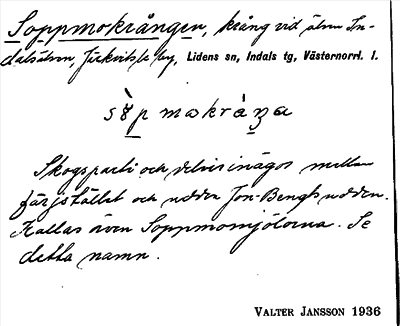 Soppmokrången, krång vid älven In-
dalsälven, by, Lidens sn, Indals tg, Västernorrl. l.
Skogsparti och delvis inägor mellan
färjstället och udden Jon-Bengtsudden.
Kallas även Soppmomjölorna. Se
detta namn.
VALTER JANSSON 1936